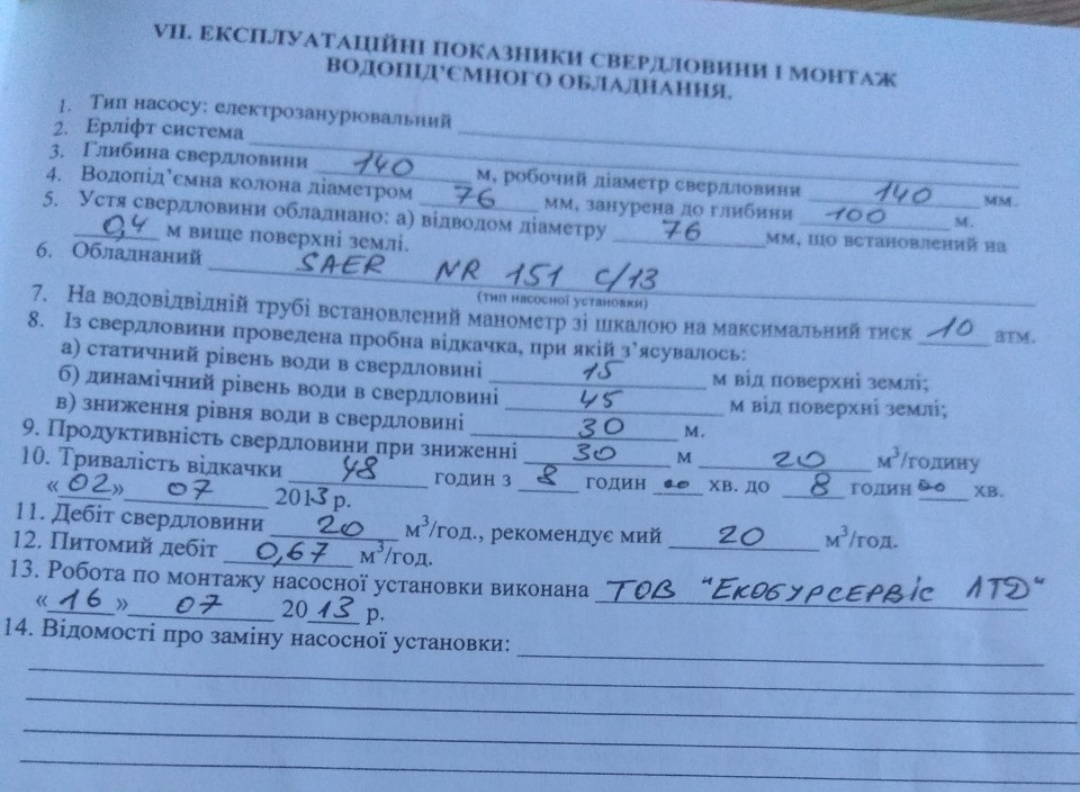 VII. ЕКСПЛУАТАЦІЙНІ ПОКАЗНИКИ СВЕРДЛОВИНИ І МОНТАЖ
ВОДОПІД'ЄМНОГО ОБЛАДНАННЯ.
1. Тип насосу: електрозанурювальний
2. Ерліфт система
3. Глибина свердловини 140 м, робочий діаметр свердловини 140 мм.
4. Водопід'ємна колона діаметром 76 мм, занурена до глибини 100 м.
5. Устя свердловини обладнано: а) відводом діаметру 76 мм, що встановлений на
0,4 м вище поверхні землі.
6. Обладнаний SAER NR 151 C/13
(тип насосної установки)
7. На водовідвідній трубі встановлений манометр зі шкалою на максимальний тиск 10 атм.
8. Із свердловини проведена пробна відкачка, при якій з'ясувалось:
а) статичний рівень води в свердловині 15 м від поверхні землі;
б) динамічний рівень води в свердловині 45 м від поверхні землі;
в) зниження рівня води в свердловині 30 м.
9. Продуктивність свердловини при зниженні 30 м 20 м³/годину
10. Тривалість відкачки 48 годин з 8 годин 00 хв. до 8 годин 00 хв.
« 02 » 07 2013 р.
11. Дебіт свердловини 20 м³/год., рекомендує мий 20 м³/год.
12. Питомий дебіт 0,67 м³/год.
13. Робота по монтажу насосної установки виконана ТОВ "Екобурсервіс ЛТД"
« 16 » 07 2013 р.
14. Відомості про заміну насосної установки: